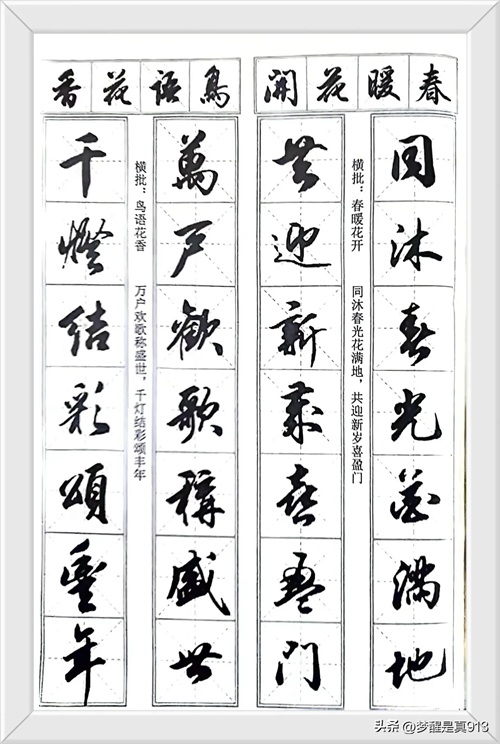 春暖花開
同沐春光花满地
共迎新歲喜盈门
横批：春暖花开
同沐春光花满地，共迎新岁喜盈门
鳥語花香
萬戸歡歌稱盛世
千燈結彩頌豐年
横批：鸟语花香
万户欢歌称盛世，千灯结彩颂丰年
头条 @梦醒是真913